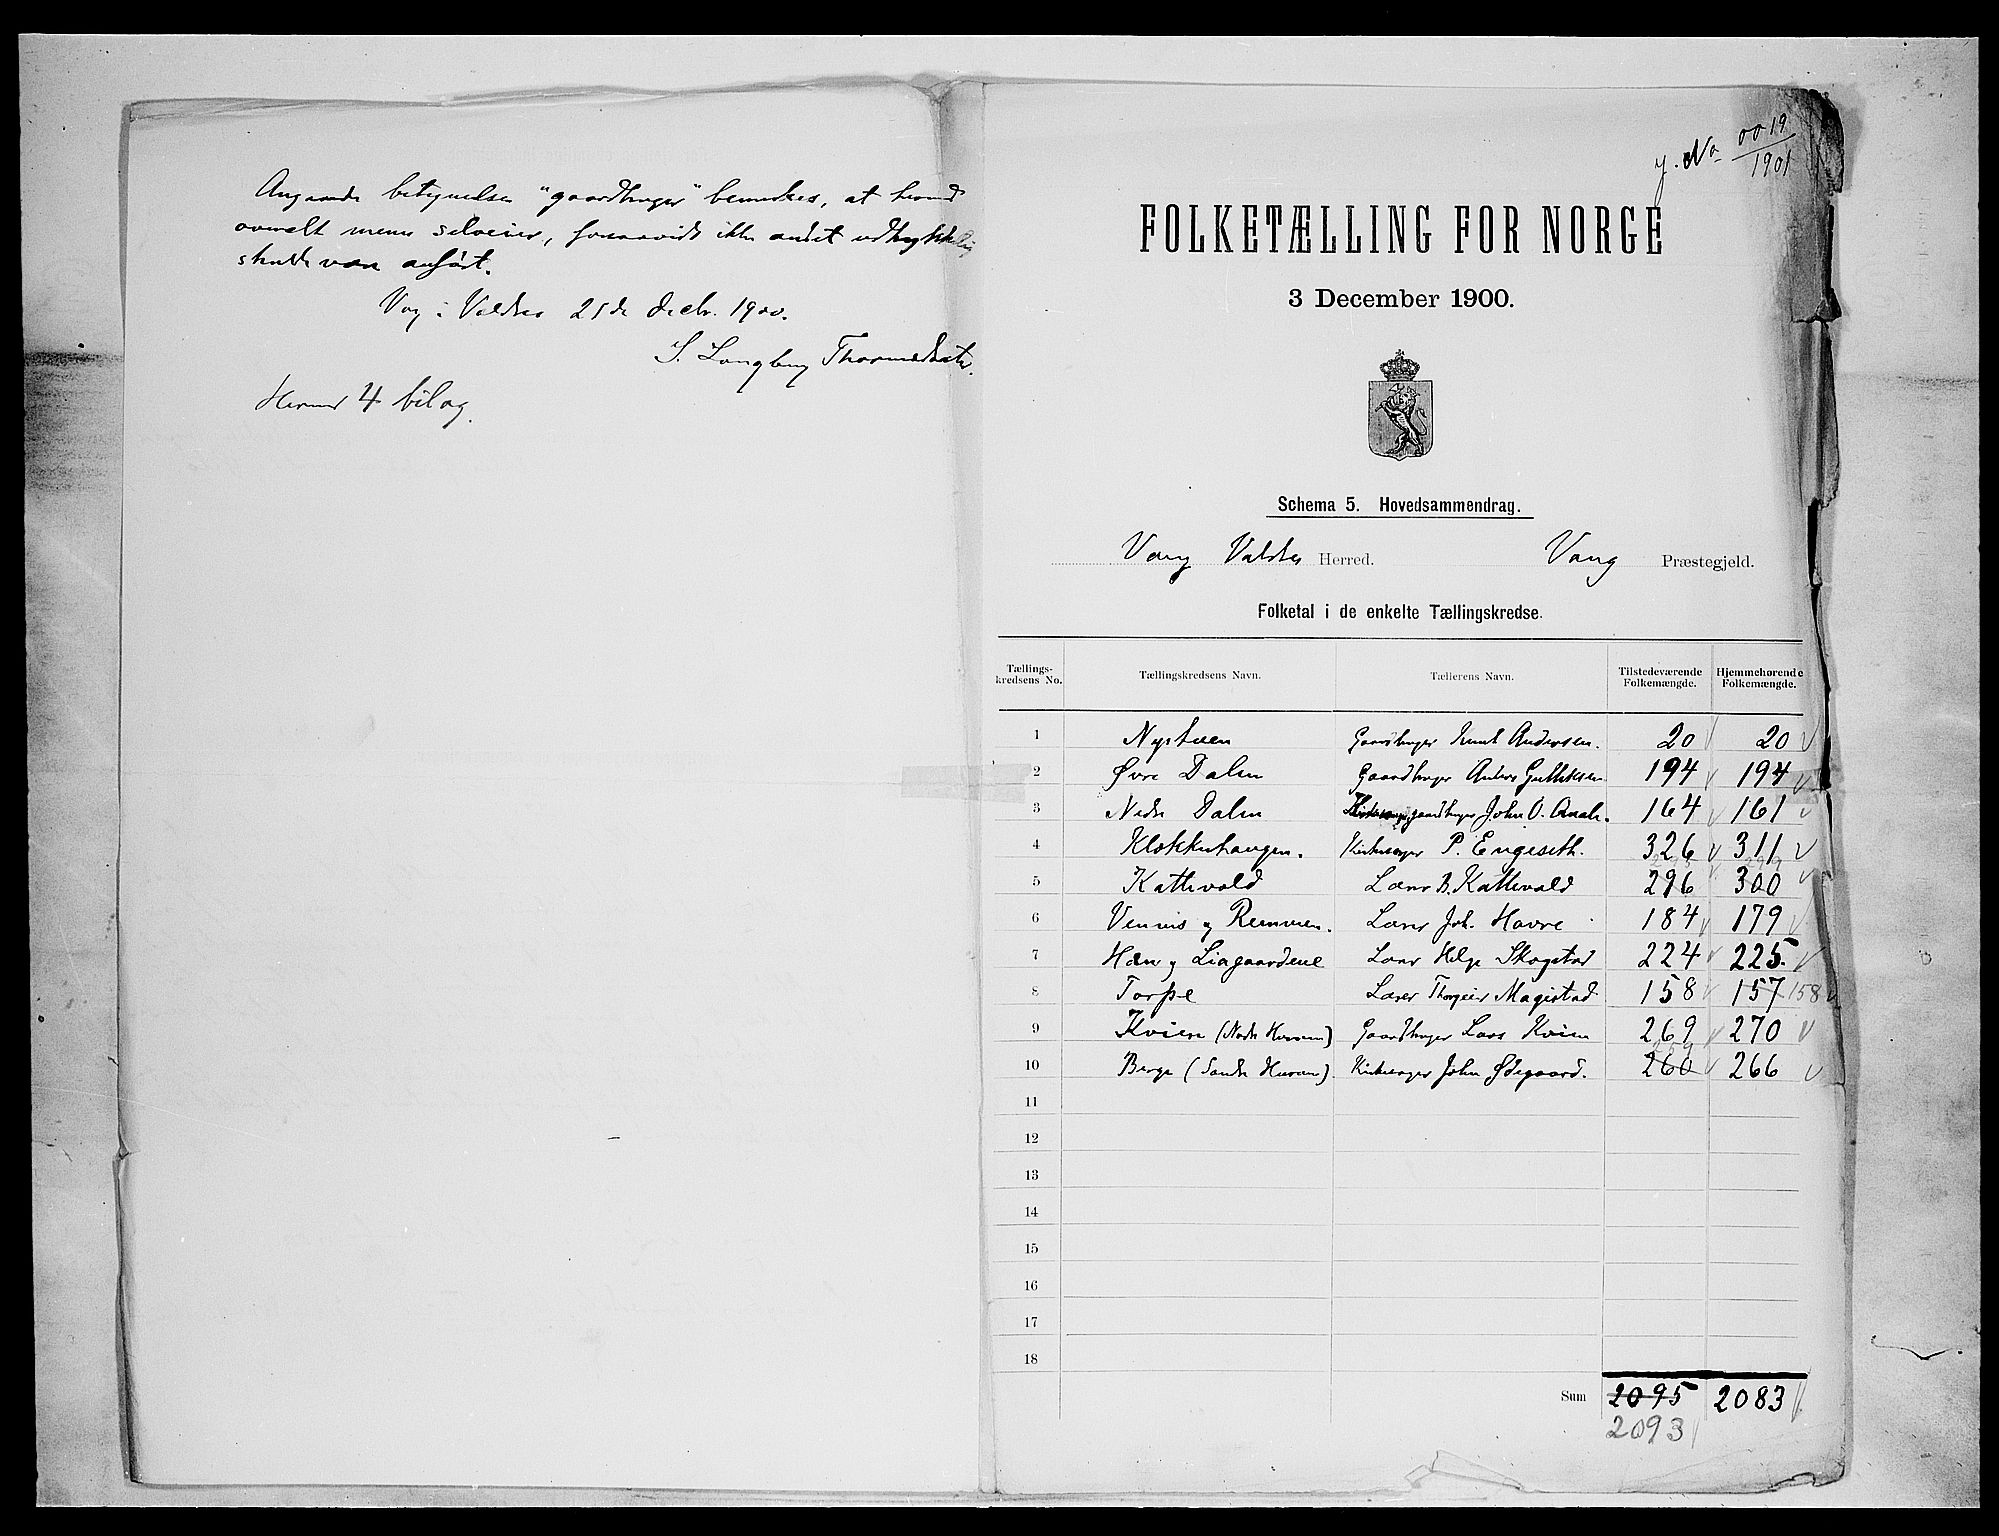 Angaaende betegnelsen "gaardbruger" bemærkes, at hermed
overalt menes selveier, forsaavidt ikke andet udtrykkelig
skulde være anført.
Vang i Valdres 21de decbr. 1900.
S. Langberg
Hermed 4 bilag.
J. No 0019/1901
FOLKETÆLLING FOR NORGE
3 December 1900.
Schema 5. Hovedsammendrag.
Vang Valdres Herred. Vang Præstegjeld.
Folketal i de enkelte Tællingskredse.
Tællings-kredsens No. Tællingskredsens Navn. Tællerens Navn. Tilstedeværende Folkemængde. Hjemmehørende Folkemængde.
1 Nystuen Gaardbruger Knut Andersen. 20 20
2 Øvre Dalen Gaardbruger Anders Gulliksen 194 194
3 Nedre Dalen gaardbruger John O. 164 161
4 Klokkerhaugen. Kirkesanger P. Engeseth. 326 311
5 Kattevold Lærer B. Kattevold 296 300
6 Vennis og Remmen. Lærer Joh. Havre 184 179
7 Hæn og Liagaardene Lærer Helge Skogstad 224 225.
8 Torpe Lærer Thorgeir Magistad 158 157 158
9 Kvien (Nedre Hurum) Gaardbruger Lars Kvien 269 270
10 Berge (Søndre Hurum). Kirkesanger John Ødegaard. 259 260 266
11
12
13
14
15
16
17
18
Sum 2095 2083
2093